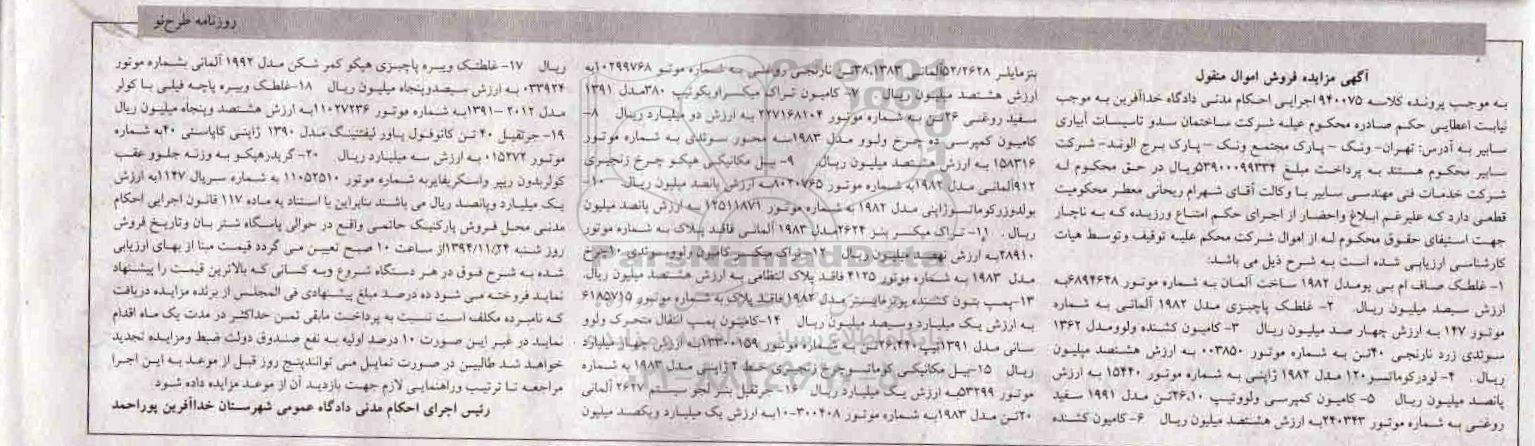 روزنامه طرح‌نو
آگهی مزایده فروش اموال منقول
به موجب پرونده کلاسه ۹۴۰۰۷۵ اجرایی احکام مدنی دادگاه خداآفرین به موجب
نیابت اعطایی حکم صادره محکوم عیله شرکت ساختمان سدو تاسیسات آبیاری
سابیر به آدرس: تهران- ونک - پارک مجتمع ونک - پارک برج الوند- شرکت
سابیر محکوم هستند به پرداخت مبلغ ۵۳۹۰۰۰۹۹۳۳۴ریال در حق محکوم له
شرکت خدمات فنی مهندسی سابیر با وکالت آقای شهرام ریحانی معطر محکومیت
قطعی دارد که علیرغم ابلاغ واحضار از اجرای حکم امتناع ورزیده که به ناچار
جهت استیفای حقوق محکوم له از اموال شرکت محکم علیه توقیف وتوسط هیات
کارشناسی ارزیابی شده است به شرح ذیل می باشد:
۱- غلطک صاف ام بی یومدل ۱۹۸۲ ساخت آلمان به شماره موتور ۶۸۹۴۶۴۸به
ارزش سیصد میلیون ریال. ۲- غلطک پاچیزی مدل ۱۹۸۲ آلمانی به شماره
موتور ۱۴۷ به ارزش چهار صد میلیون ریال ۳- کامیون کشنده ولوومدل ۱۳۶۲
سوئدی زرد نارنجی ۴۰تن به شماره موتور ۰۰۳۸۵۰ به ارزش هشتصد میلیون
ریال . ۴- لودرکوماتسو ۱۲۰ مدل ۱۹۸۲ ژاپنی به شماره موتور ۱۵۴۴۰ به ارزش
پانصد میلیون ریال ۵- کامیون کمپرسی ولووتیپ ۲۶،۱۰تن مدل ۱۹۹۱ سفید
روغنی به شماره موتور ۲۴۰۳۴۳به ارزش هشتصد میلیون ریال ۶- کامیون کشنده
بنزمایلر ۵۲/۲۶۲۸آلمانی ۳۸،۱۳۸۳تن نارنجی روغنی به شماره موتور ۱۰۲۹۹۷۶۸به
ارزش هشتصد میلیون ریال ۷- کامیون تراک میکسراویکوتیپ ۳۸۰مدل ۱۳۹۱
سفید روغنی ۲۶تن به شماره موتور ۲۲۷۱۶۸۱۰۴ به ارزش دو میلیارد ریال ۸-
کامیون کمپرسی ده چرخ ولوو مدل ۱۹۸۳سه محور سوئدی به شماره موتور
۱۵۸۳۱۶ به ارزش هشتصد میلیون ریال ۹- بیل مکانیکی هیکو چرخ زنجیری
۹۱۲آلمانی مدل ۱۹۸۲به شماره موتور ۸۰۲۰۷۶۵به ارزش پانصد میلیون ریال ۱۰-
بولدوزرکوماتسوژاپنی مدل ۱۹۸۲ به شماره موتور ۱۲۵۱۱۸۷۱ به ارزش پانصد میلیون
ریال . ۱۱- تراک میکسر بنز ۲۶۲۴مدل ۱۹۸۳ آلمانی فاقد پلاک به شماره موتور
۲۸۹۱۰به ارزش نهصد میلیون ریال ۱۲- تراک میکسر کامیون ولووسوئدی ۱۰چرخ
مدل ۱۹۸۳ به شماره موتور ۴۱۲۵ فاقد پلاک انتظامی به ارزش هشتصد میلیون ریال
۱۳-پمپ بتون کشنده پوتزمایستر مدل ۱۹۸۲فاقد پلاک به شماره موتور ۶۱۸۵۷۱۵
به ارزش یک میلیارد وسیصد میلیون ریال ۱۴-کامیون پمپ انتقال متحرک ولوو
سانی مدل ۱۳۹۱تیپ ۲۶،۴۴۰تن به شماره موتور ۱۳۳۰۰۱۵۹به ارزش چهار میلیارد
ریال ۱۵-بیل مکانیکی کوماتسوچرخ زنجیری خط ۲ ژاپنی مدل ۱۹۸۳ به شماره
موتور ۵۳۲۹۹به ارزش یک میلیارد ریال ۱۶- جرثقیل بنز لجو سیستم ۲۶۲۷ آلمانی
۲۰تن مدل ۱۹۸۳به شماره موتور ۳۰۰۴۰۸-۱۰به ارزش یک میلیارد ویکصد میلیون
ریال ۱۷- غلطک ویبره پاچیزی هیکو کمر شکن مدل ۱۹۹۲ آلمانی بشماره موتور
۰۳۳۹۲۴ به ارزش سیصدوپنجاه میلیون ریال ۱۸-غلطک ویبره پاچه فیلی با کولر
مدل ۲۰۱۲ -۱۳۹۱به شماره موتور ۱۱۰۲۷۲۳۶به ارزش هشتصد وپنجاه میلیون ریال
۱۹-جرثقیل ۴۰ تن کاتوفول پاور لیفتینگ مدل ۱۳۹۰ ژاپنی کاپاستی ۴۰به شماره
موتور ۰۱۵۲۷۲ به ارزش سه میلیارد ریال ۲۰- گریدرهیکو به وزنه جلوو عقب
کولربدون ریپر واسکریفایربه شماره موتور ۱۱۰۵۲۵۱۰ به شماره سریال ۱۱۴۷به ارزش
یک میلیارد وپانصد ریال می باشند بنابراین با استناد به ماده ۱۱۷ قانون اجرایی احکام
مدنی محل فروش پارکینک حاتمی واقع در حوالی پاسگاه شتر بان وتاریخ فروش
روز شنبه ۱۳۹۴/۱۱/۲۴از ساعت ۱۰ صبح تعیین می گردد قیمت مبنا از بهای ارزیابی
شده به شرح فوق در هر دستگاه شروع وبه کسانی که بالاترین قیمت را پیشنهاد
نماید فروخته می شود ده درصد مبلغ پیشنهادی فی المجلس از برنده مزایده دریافت
که نامبرده مکلف است نسبت به پرداخت مابقی ثمن حداکثر در مدت یک ماه اقدام
نماید در غیر این صورت ۱۰ درصد اولیه به نفع صندوق دولت ضبط ومزایده تجدید
خواهید شد طالبین در صورت تمایل می توانندپنج روز قبل از موعد به این اجرا
مراجعه تا ترتیب وراهنمایی لازم جهت بازدید آن از موعد مزایده داده شود.
رئیس اجرای احکام مدنی دادگاه عمومی شهرستان خداآفرین پوراحمد